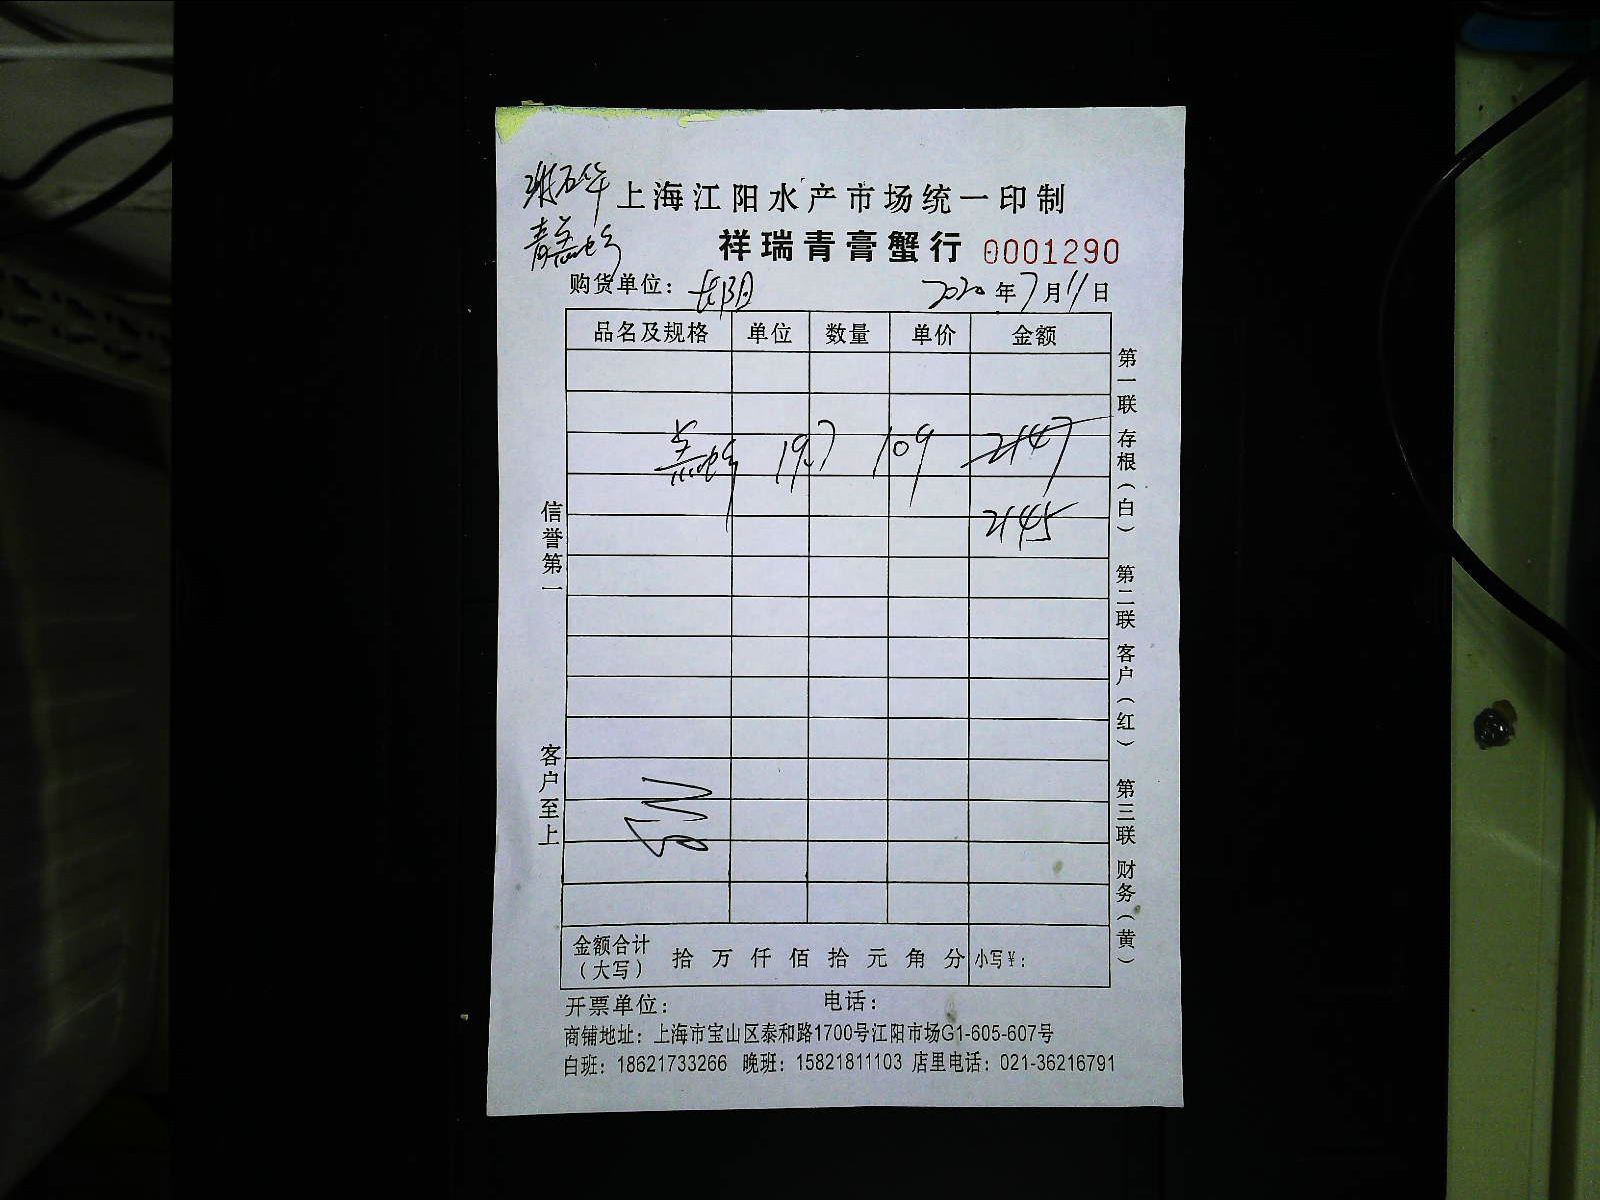 上海江阳水产市场统一印制
青羔虾
祥瑞青膏蟹行 0001290
购货单位：长阳 2020年7月11日
品名及规格 单位 数量 单价 金额
羔虾 19.7 109 2147
2145
信誉第一
客户至上
第一联 存根（白） 第二联 客户（红） 第三联 财务（黄）
金额合计（大写） 拾 万 仟 佰 拾 元 角 分 小写¥：
开票单位： 电话：
商铺地址：上海市宝山区泰和路1700号江阳市场G1-605-607号
白班：18621733266 晚班：15821811103 店里电话：021-36216791